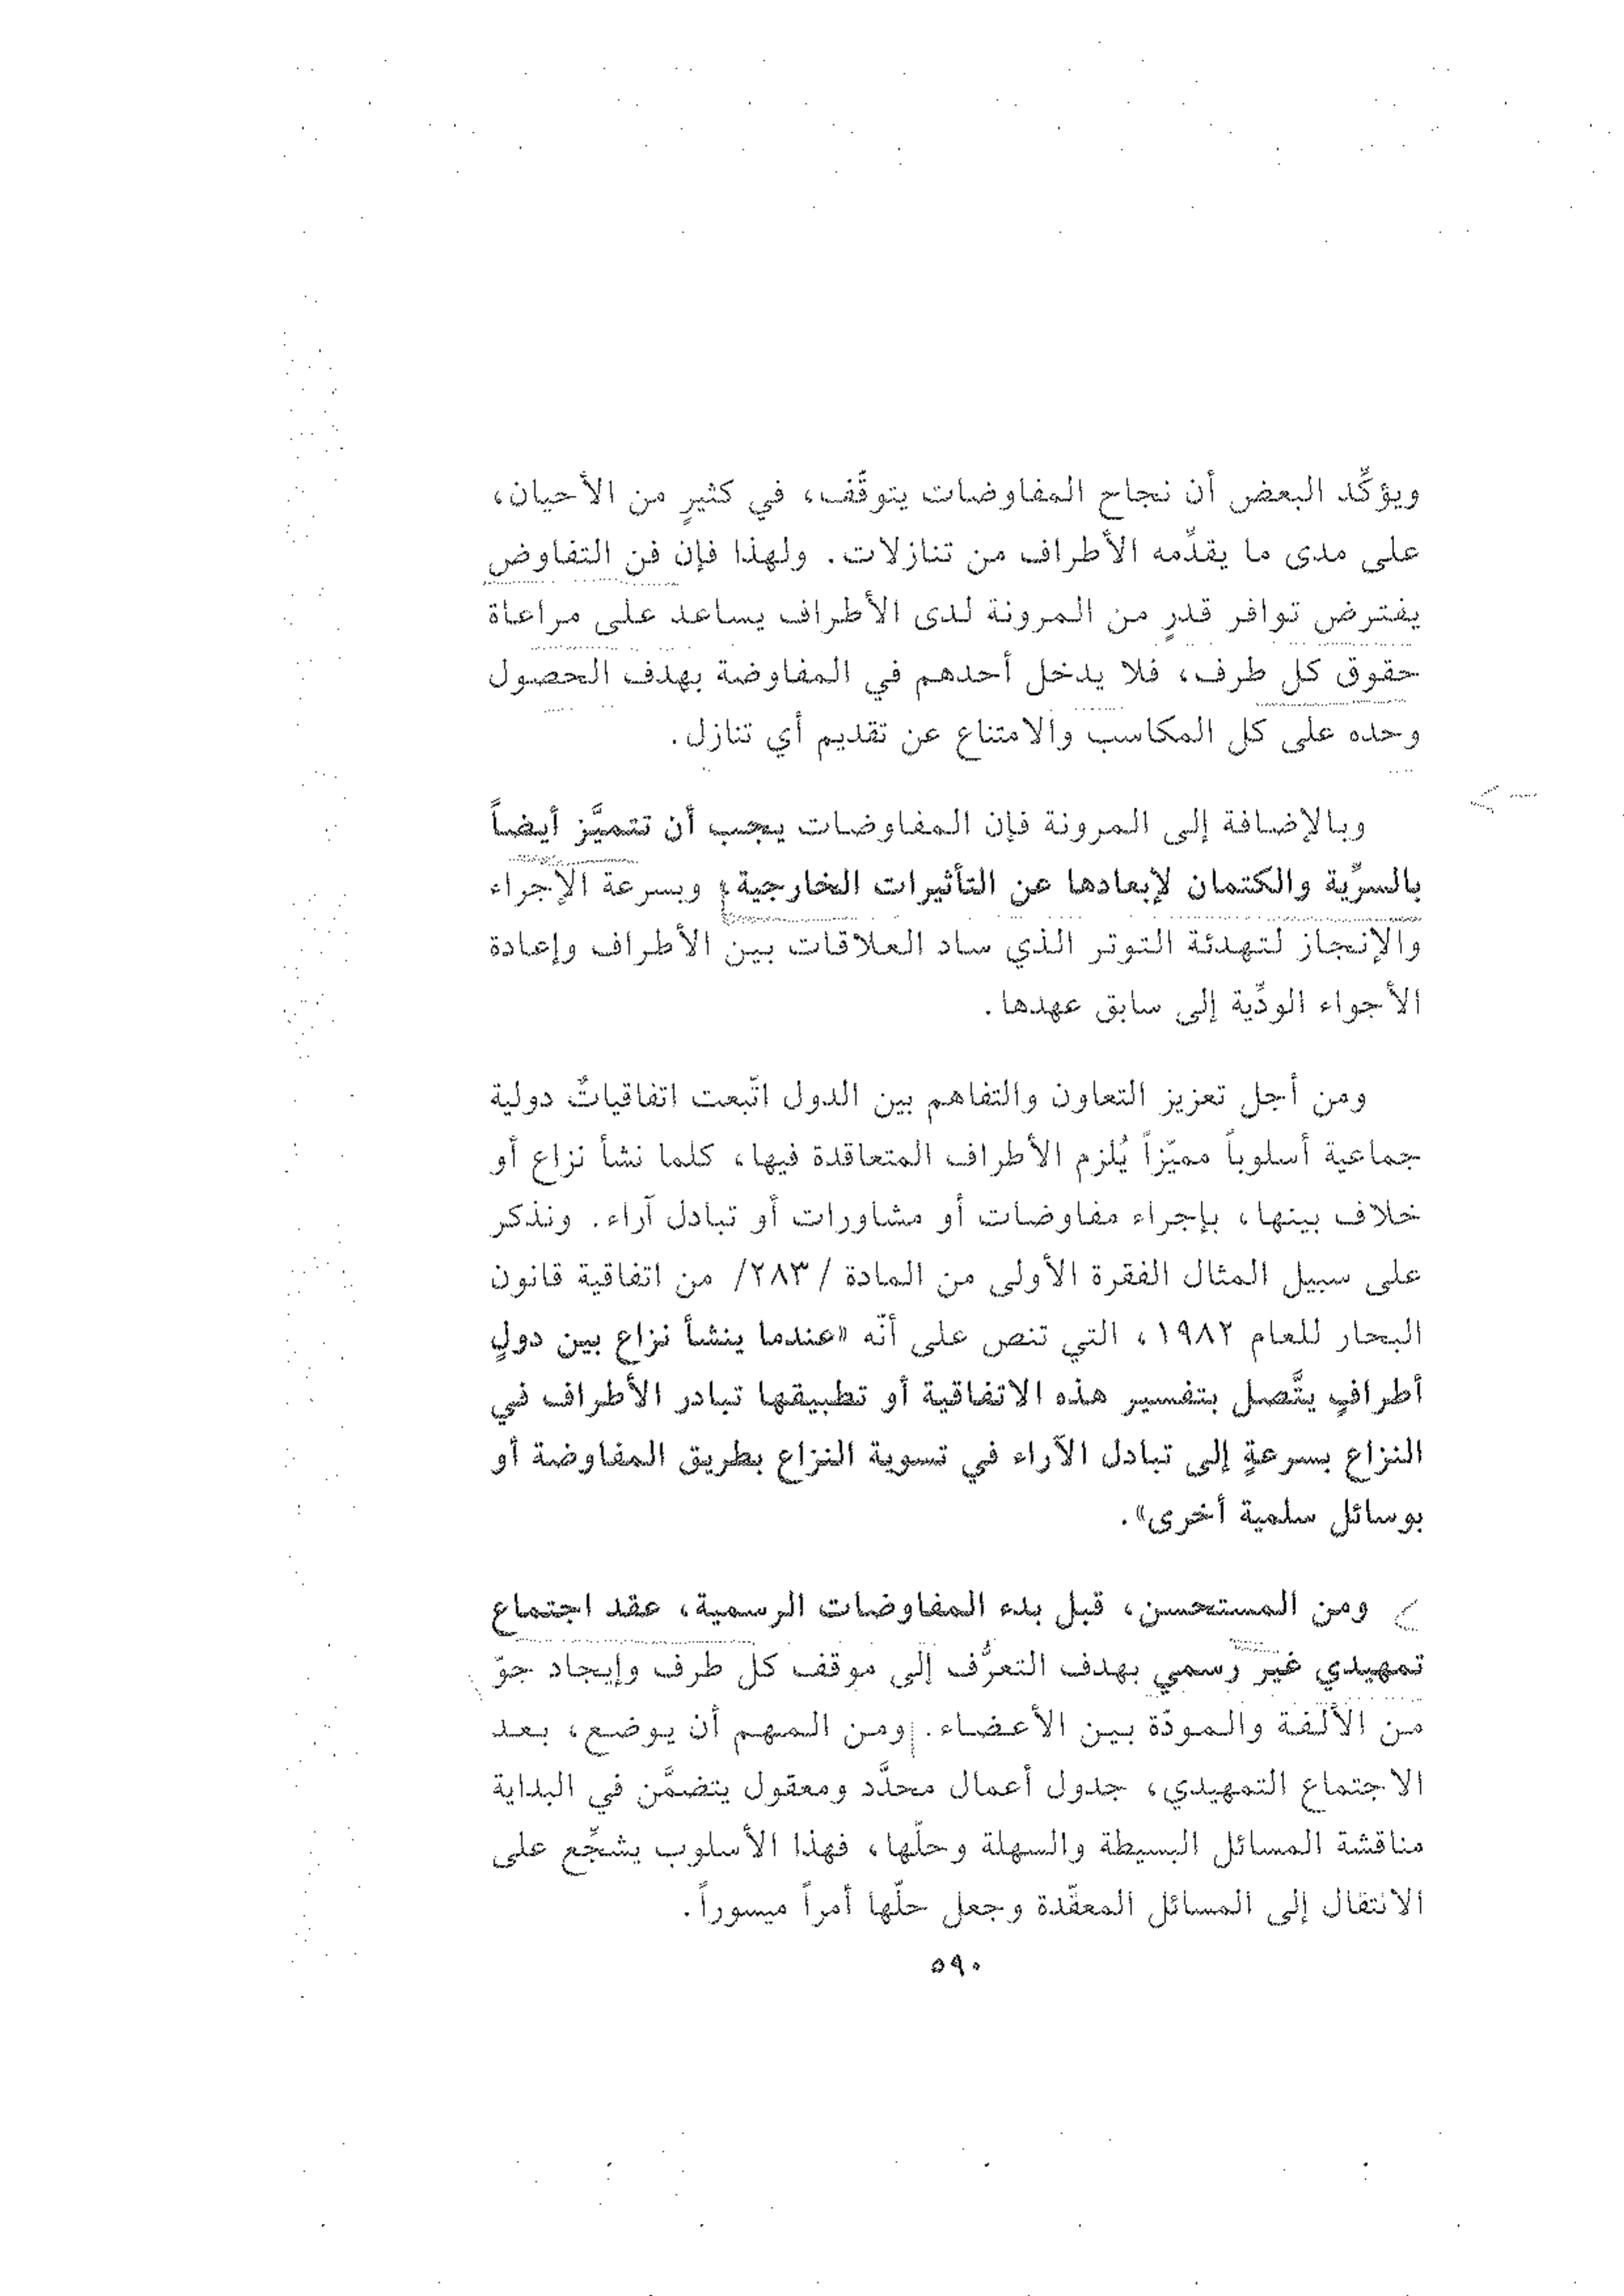 ويؤكِّد البعض أن نجاح المفاوضات يتوقَّف، في كثيرٍ من الأحيان،
على مدى ما يقدِّمه الأطراف من تنازلات. ولهذا فإن فن التفاوض
يفترض توافر قدرٍ من المرونة لدى الأطراف يساعد على مراعاة
حقوق كل طرف، فلا يدخل أحدهم في المفاوضة بهدف الحصول
وحده على كل المكاسب والامتناع عن تقديم أي تنازل.
وبالإضافة إلى المرونة فإن المفاوضات يجب أن تتميَّز أيضاً
بالسرِّية والكتمان لإبعادها عن التأثيرات الخارجية؛ وبسرعة الإجراء
والإنجاز لتهدئة التوتر الذي ساد العلاقات بين الأطراف وإعادة
الأجواء الودِّية إلى سابق عهدها.
ومن أجل تعزيز التعاون والتفاهم بين الدول اتّبعت اتفاقياتٌ دولية
جماعية أسلوباً مميّزاً يُلزم الأطراف المتعاقدة فيها، كلما نشأ نزاع أو
خلاف بينها، بإجراء مفاوضات أو مشاورات أو تبادل آراء. ونذكر
على سبيل المثال الفقرة الأولى من المادة /٢٨٣/ من اتفاقية قانون
البحار للعام ١٩٨٢، التي تنص على أنّه «عندما ينشأ نزاع بين دولٍ
أطرافٍ يتَّصل بتفسير هذه الاتفاقية أو تطبيقها تبادر الأطراف في
النزاع بسرعةٍ إلى تبادل الآراء في تسوية النزاع بطريق المفاوضة أو
بوسائل سلمية أخرى».
ومن المستحسن، قبل بدء المفاوضات الرسمية، عقد اجتماع
تمهيدي غير رسمي بهدف التعرُّف إلى موقف كل طرف وإيجاد جوّ
من الألفة والمودّة بين الأعضاء. ومن المهم أن يوضع، بعد
الاجتماع التمهيدي، جدول أعمال محدَّد ومعقول يتضمَّن في البداية
مناقشة المسائل البسيطة والسهلة وحلّها، فهذا الأسلوب يشجِّع على
الانتقال إلى المسائل المعقّدة وجعل حلّها أمراً ميسوراً.
٥٩٠